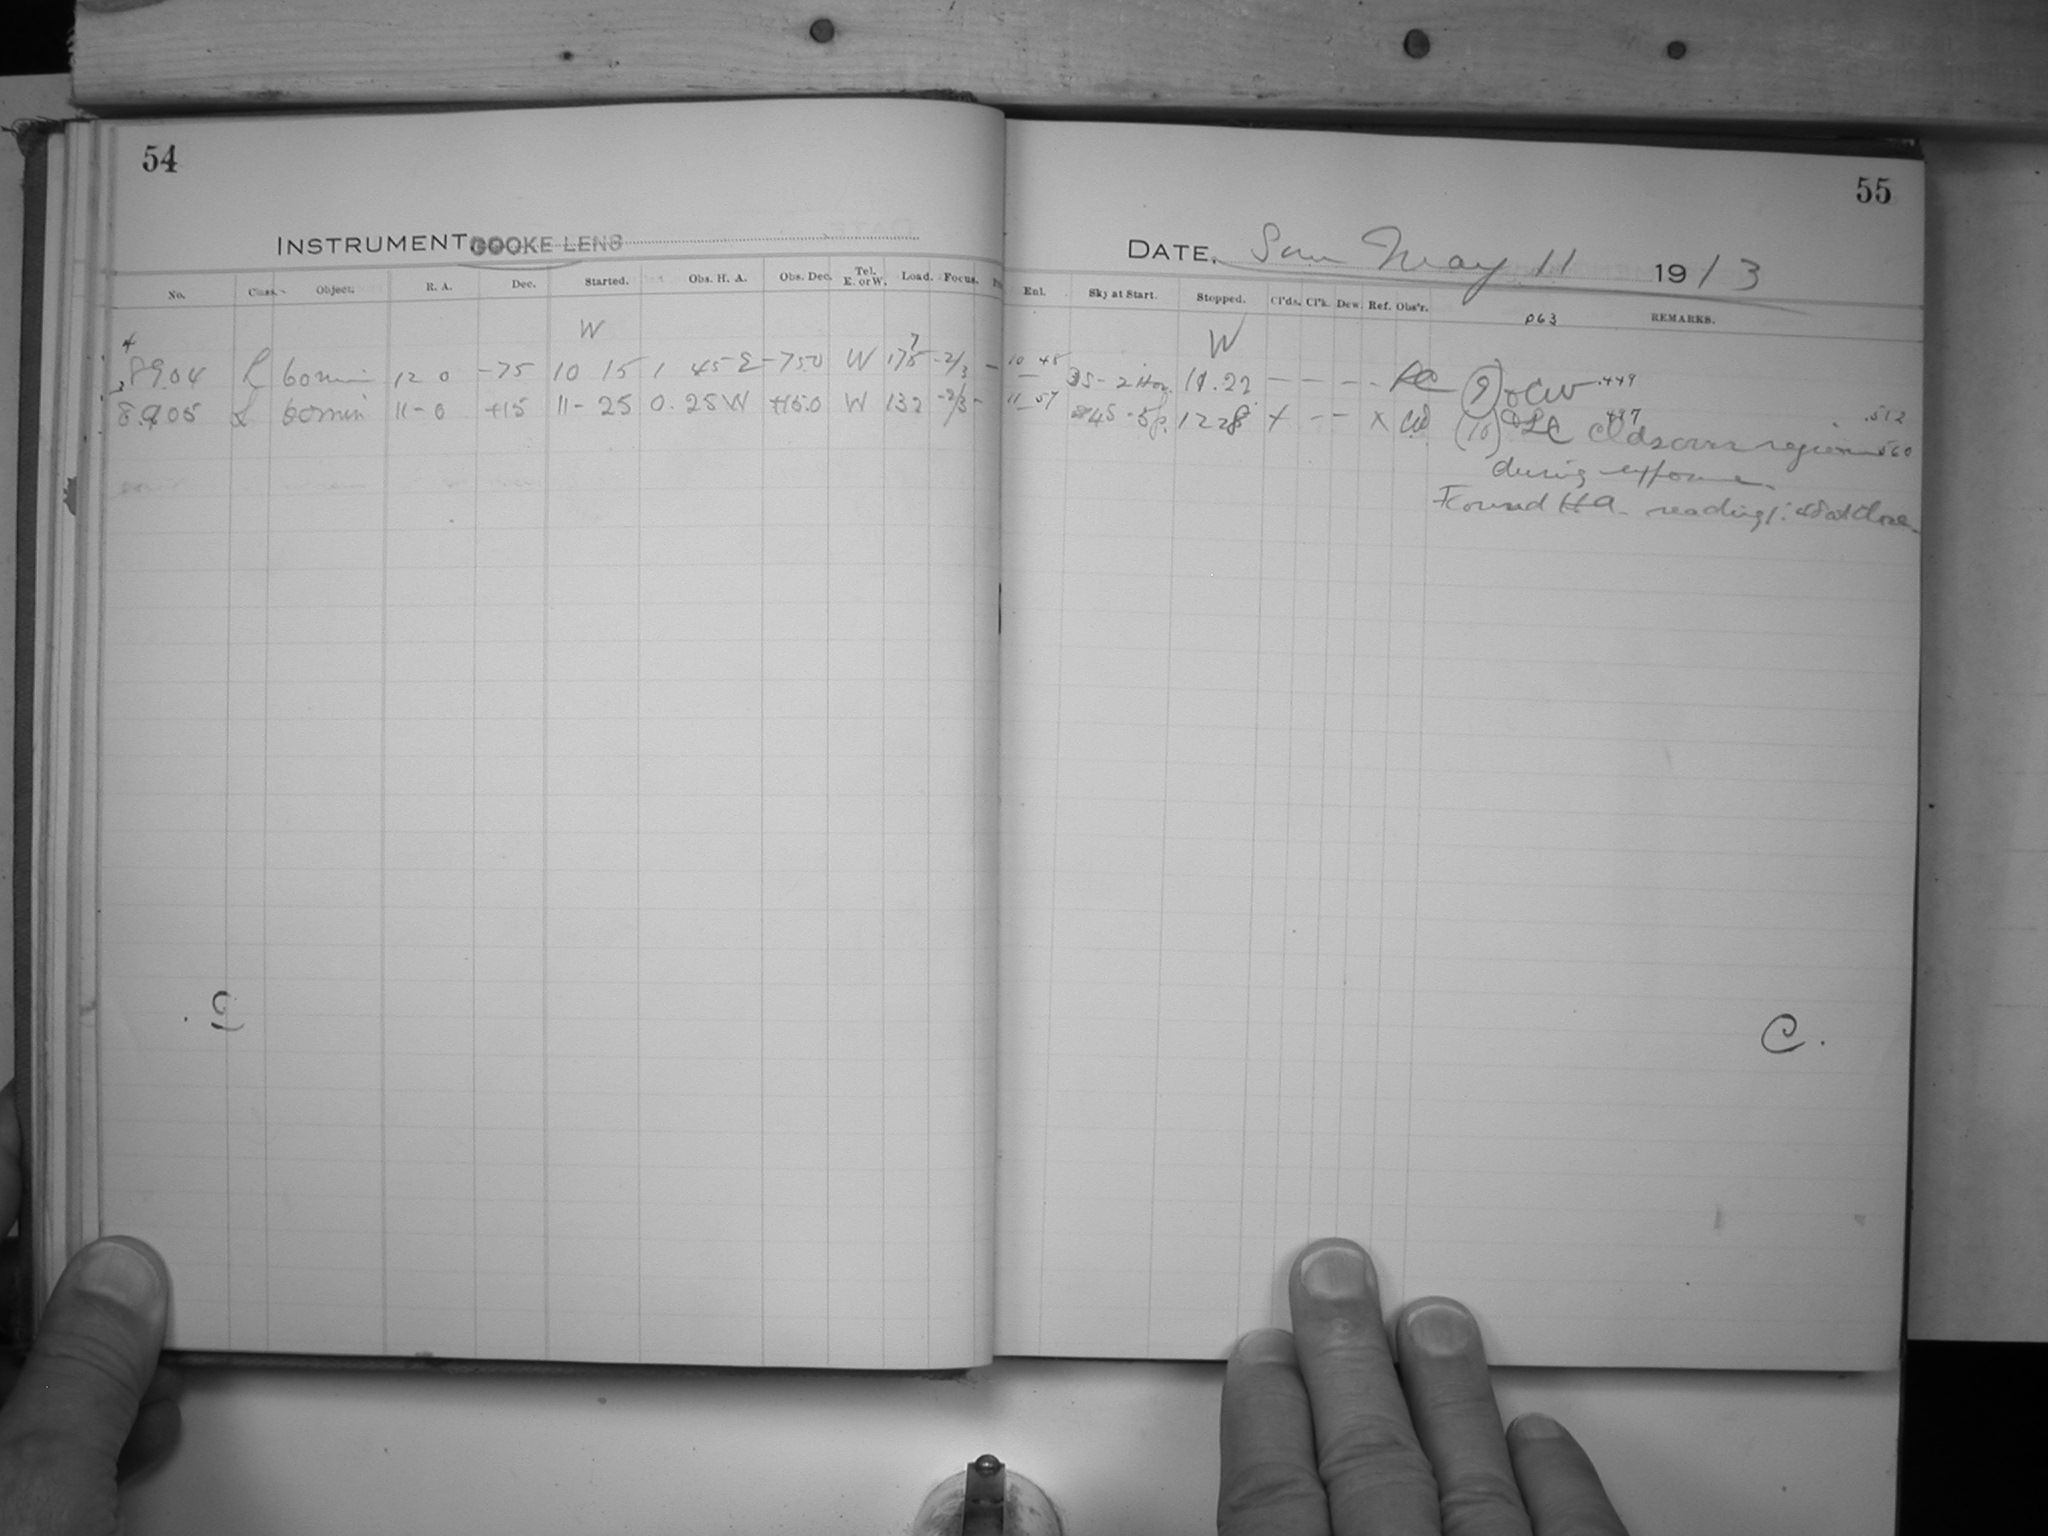 54
INSTRUMENT COOKE LENS
No. Class. Object. R. A. Dec. Started. Obs. H. A. Obs. Dec. Tel. E. or W. Load. Focus.
W
8904 L 60 min 12 0 -75 10 15 1 45 E -75.0 W 175 -2/3 -
8905 L 60 min 11-0 +15 11-25 0.25 W +15.0 W 132 -2/3 -
C
55
DATE. Sun May 11 1913
Enl. Sky at Start. Stopped. Cl'ds. Cl'k. Dew. Ref. Obs'r. 063 REMARKS.
W
10 48 11.22 - - - - (9) CW .449
11 57 12 28 x - - x CW (10) LC .497 Clds over region .512
during exposure. .560
Found H A. reading at close.
C.